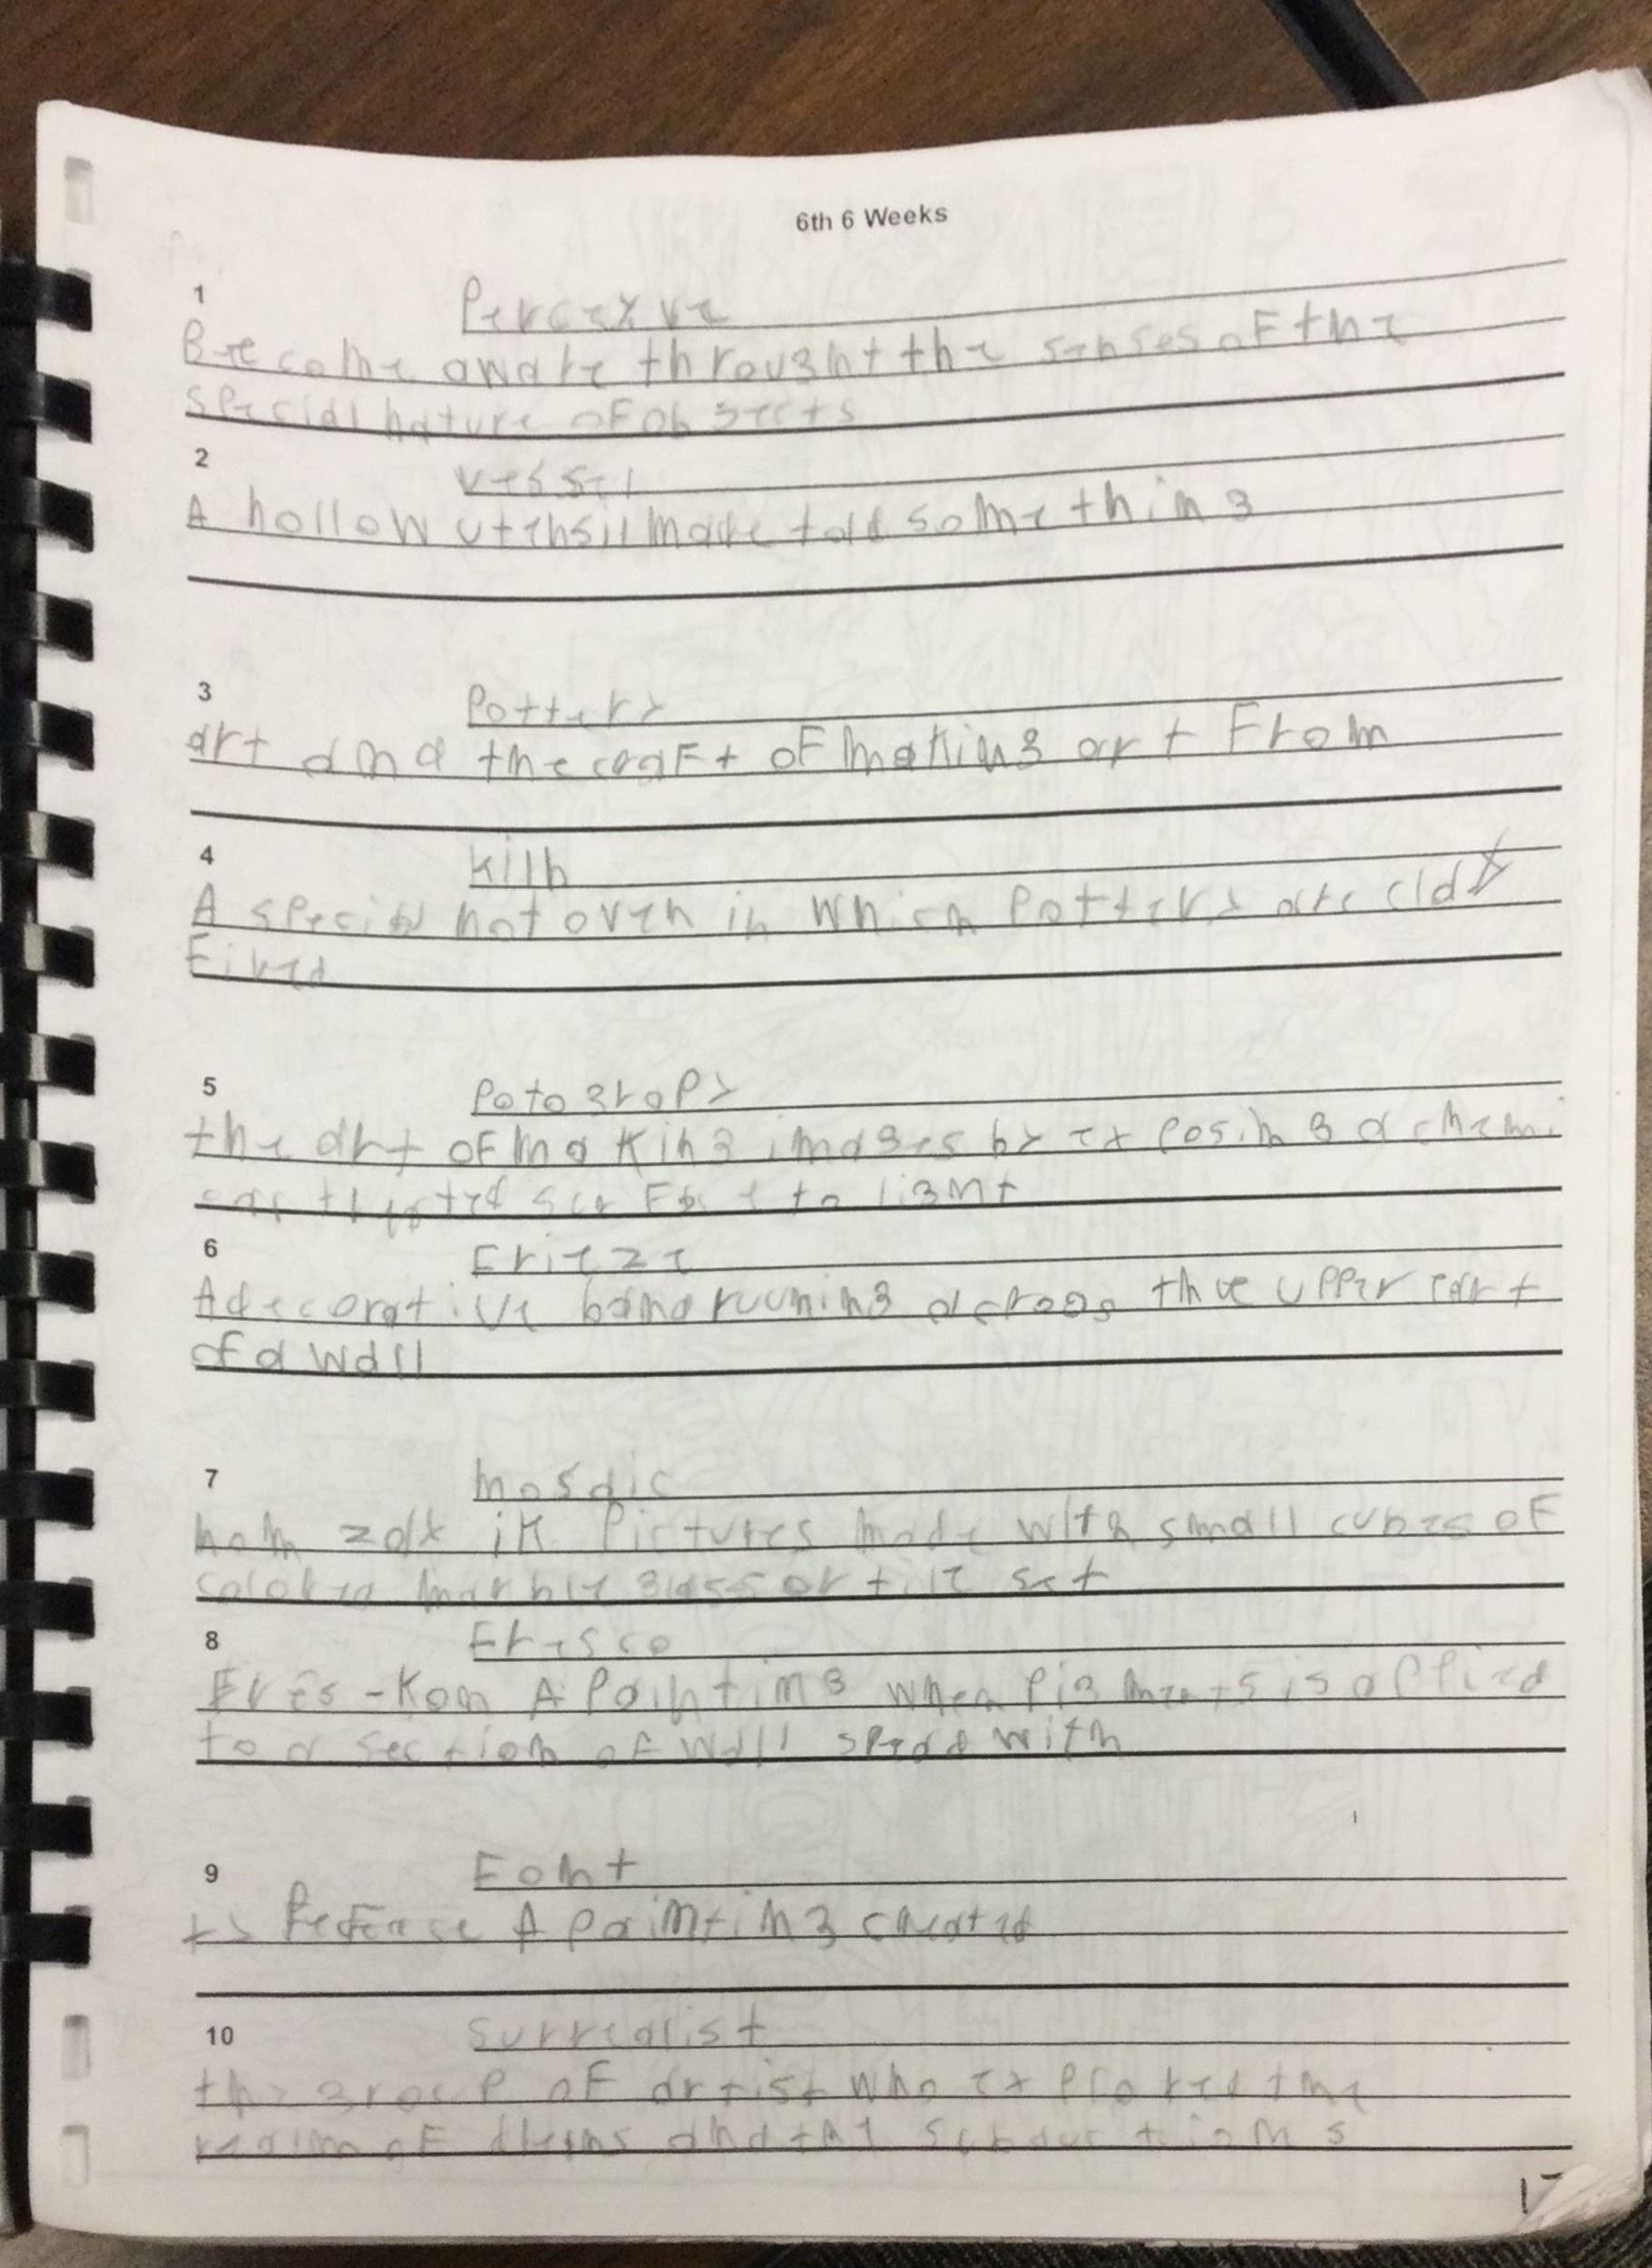 6th 6 Weeks
1
Perceive
Become aware throught the senses of the
special nature of objects
2
Vessel
A hollow utensil made told something
3
Pottery
art and the craft of making art From
4
Kiln
A special hot oven in which Pottery are clay
Fired
5
Potograpy
the art of making images by exposing a chemi
to light
6
Frieze
A decorative band ruuning across the upper part
of a wall
7
mosaic
Pictures made with small cubes of
colored marble glass or tile set
8
Fresco
Fres-Koh A Painting when pigments is applied
to a section of wall spead with
9
Font
A painting created
10
Surrealist
the group of artist who explored the
realm of and the
17